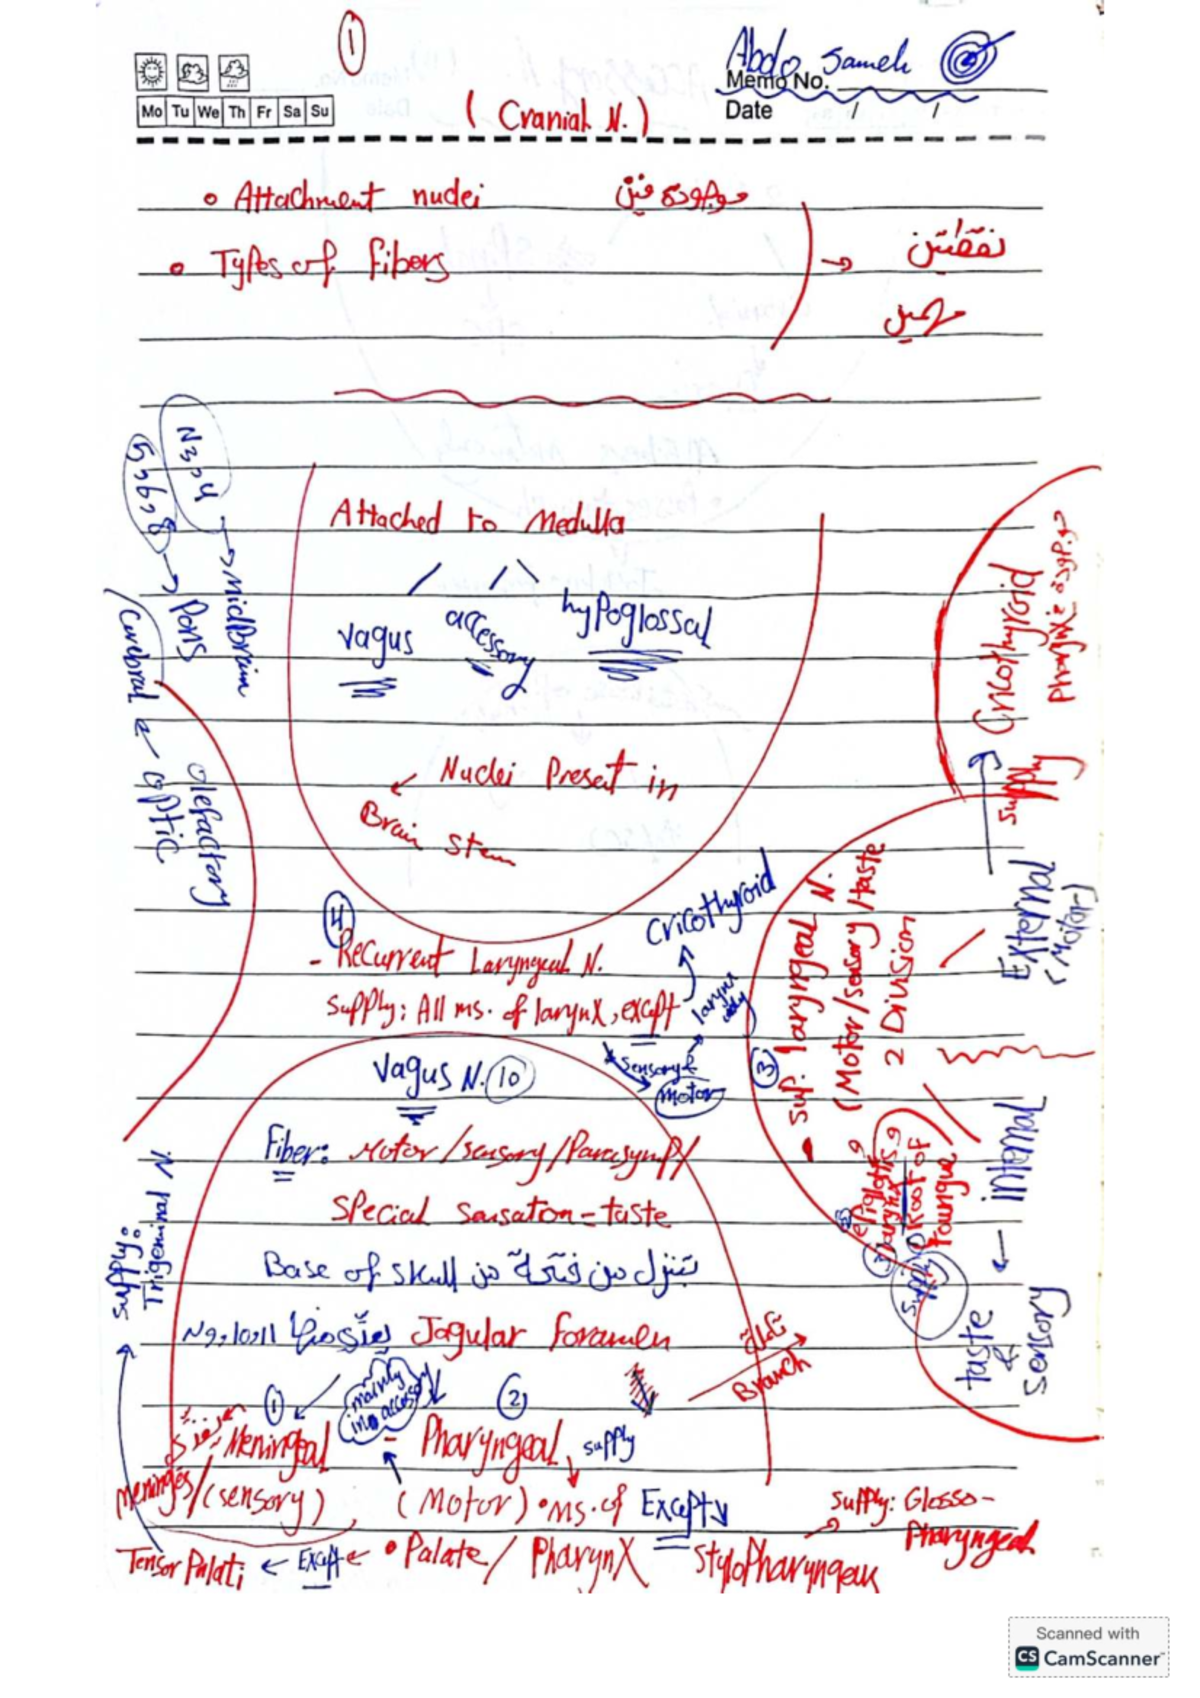 1
Abdo Sameh
Memo No.
Mo Tu We Th Fr Sa Su
Date / /
( Cranial N. )
• Attachment nuclei موجودة فين
• Types of fibers → نقطتين
مهمين
N3,4 → MidBrain
5,6,8 → Pons
Cerebral ← optic
olefactory
Attached to Medulla
vagus
accessory
hypoglossal
Nuclei Present in
Brain stem
Cricothyroid
supply
External
(Motor)
4
- Recurrent Laryngeal N.
supply: All ms. of larynx, except
Cricothyroid
sensory &
motor
3
• sup. laryngeal N.
(Motor/sensory/taste
2 Division
internal
sensory
&
taste
Root of
Toungue
supply
Vagus N. 10
Fiber: Motor/sensory/Parasymp/
special sensaton = taste
Base of skull بتنزل من فتحة من
N9,10,11 Jagular foramen
Branch
1
mainly
in accessory
2
- Meningeal
- Pharyngeal supply
meninges/(sensory)
(Motor) • ms. of Except
• Palate/ Pharynx
stylopharyngeus
supply: Glosso-
Pharyngeal
Tensor Palati ← Except ←
supply:
Trigeminal N.
Scanned with
CS CamScanner